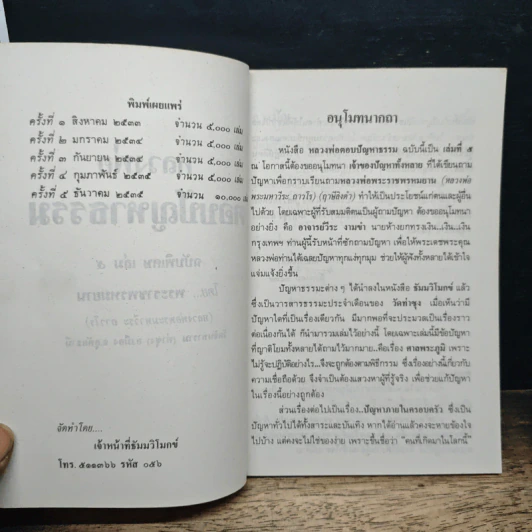 พิมพ์เผยแพร่
ครั้งที่ ๑ สิงหาคม ๒๕๓๓ จำนวน ๕,๐๐๐ เล่ม
ครั้งที่ ๒ มกราคม ๒๕๓๔ จำนวน ๕,๐๐๐ เล่ม
ครั้งที่ ๓ กันยายน ๒๕๓๔ จำนวน ๕,๐๐๐ เล่ม
ครั้งที่ ๔ กุมภาพันธ์ ๒๕๓๕ จำนวน ๕,๐๐๐ เล่ม
ครั้งที่ ๕ ธันวาคม ๒๕๓๕ จำนวน ๑๐,๐๐๐ เล่ม
จัดทำโดย....
เจ้าหน้าที่ธัมมวิโมกข์
โทร. ๕๑๑๓๖๖ รหัส ๐๕๖
อนุโมทนากถา
หนังสือ หลวงพ่อตอบปัญหาธรรม ฉบับนี้เป็น เล่มที่ ๕
ณ โอกาสนี้ต้องขออนุโมทนา เจ้าของปัญหาทั้งหลาย ที่ได้เขียนถาม
ปัญหาเพื่อกราบเรียนถามหลวงพ่อพระราชพรหมยาน (หลวงพ่อ
พระมหาวีระ ถาวโร) (ฤาษีลิงดำ) ทำให้เป็นประโยชน์แก่ตนและผู้อื่น
ไปด้วย โดยเฉพาะผู้ที่รับสมมติตนเป็นผู้ถามปัญหา ต้องขออนุโมทนา
อย่างยิ่ง คือ อาจารย์วีระ งามขำ นายห้างยกทรงเงิน...เงิน...เงิน
กรุงเทพฯ ท่านผู้นี้รับหน้าที่ซักถามปัญหา เพื่อให้พระเดชพระคุณ
หลวงพ่อท่านได้เฉลยปัญหาทุกแง่ทุกมุม ช่วยให้ผู้ฟังทั้งหลายได้เข้าใจ
แจ่มแจ้งยิ่งขึ้น
ปัญหาธรรมะต่าง ๆ ได้นำลงในหนังสือ ธัมมวิโมกข์ แล้ว
ซึ่งเป็นวารสารธรรมะประจำเดือนของ วัดท่าซุง เมื่อเห็นว่ามี
ปัญหาใดที่เป็นเรื่องเดียวกัน มีมากพอที่จะประมวลเป็นเรื่องราว
ต่อเนื่องกันได้ ก็นำมารวมเล่มไว้อย่างนี้ โดยเฉพาะเล่มนี้มีข้อปัญหา
ที่ญาติโยมทั้งหลายได้ถามไว้มากมาย...คือเรื่อง ศาลพระภูมิ เพราะ
ไม่รู้จะปฏิบัติอย่างไร...จึงจะถูกต้องตามพิธีกรรม ซึ่งเรื่องอย่างนี้เกี่ยวกับ
ความเชื่อถือด้วย จึงจำเป็นต้องแสวงหาผู้ที่รู้จริง เพื่อช่วยแก้ปัญหา
ในเรื่องนี้อย่างถูกต้อง
ส่วนเรื่องต่อไปเป็นเรื่อง..ปัญหาภายในครอบครัว ซึ่งเป็น
ปัญหาทั่วไปได้ทั้งสาระและบันเทิง หากได้อ่านแล้วคงจะหายข้องใจ
ไปบ้าง แต่คงจะไม่ใช่ของง่าย เพราะขึ้นชื่อว่า "คนที่เกิดมาในโลกนี้"